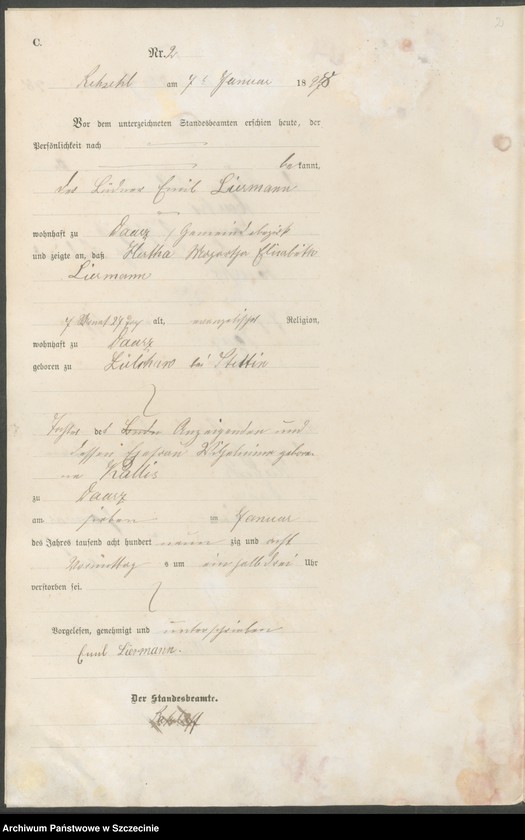 C.
Nr. 2
am 7 Januar 1898
Vor dem unterzeichneten Standesbeamten erschien heute, der
Persönlichkeit nach
be kannt,
der Emil Liermann
wohnhaft zu Daarz / Gemeindebezirk
und zeigte an, daß Hertha Elisabeth
Liermann
7 Monat 27 Tag alt, evangelischer Religion,
wohnhaft zu Daarz
geboren zu Züllchow bei Stettin
Tochter des Anzeigenden und
dessen Ehefrau Wilhelmine gebore-
ne Kallis
zu Daarz
am sieben ten Januar
des Jahres tausend acht hundert neun zig und acht
Vormittag s um ein halb drei Uhr
verstorben sei.
Vorgelesen, genehmigt und unterschrieben
Emil Liermann.
Der Standesbeamte.
Archiwum Państwowe w Szczecinie